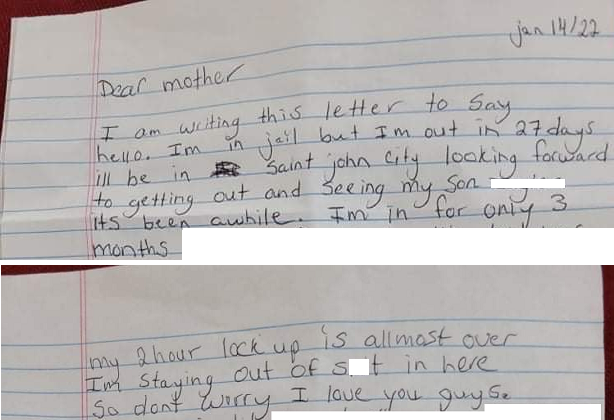 jan 14/22
Dear mother
I am writing this letter to say
hello. Im in jail but Im out in 27 days
ill be in Saint john City looking forward
to getting out and seeing my son
its been awhile. Im in for only 3
months
my 2hour lock up is allmost over
Im staying out of s t in here
So dont worry I love you guys.